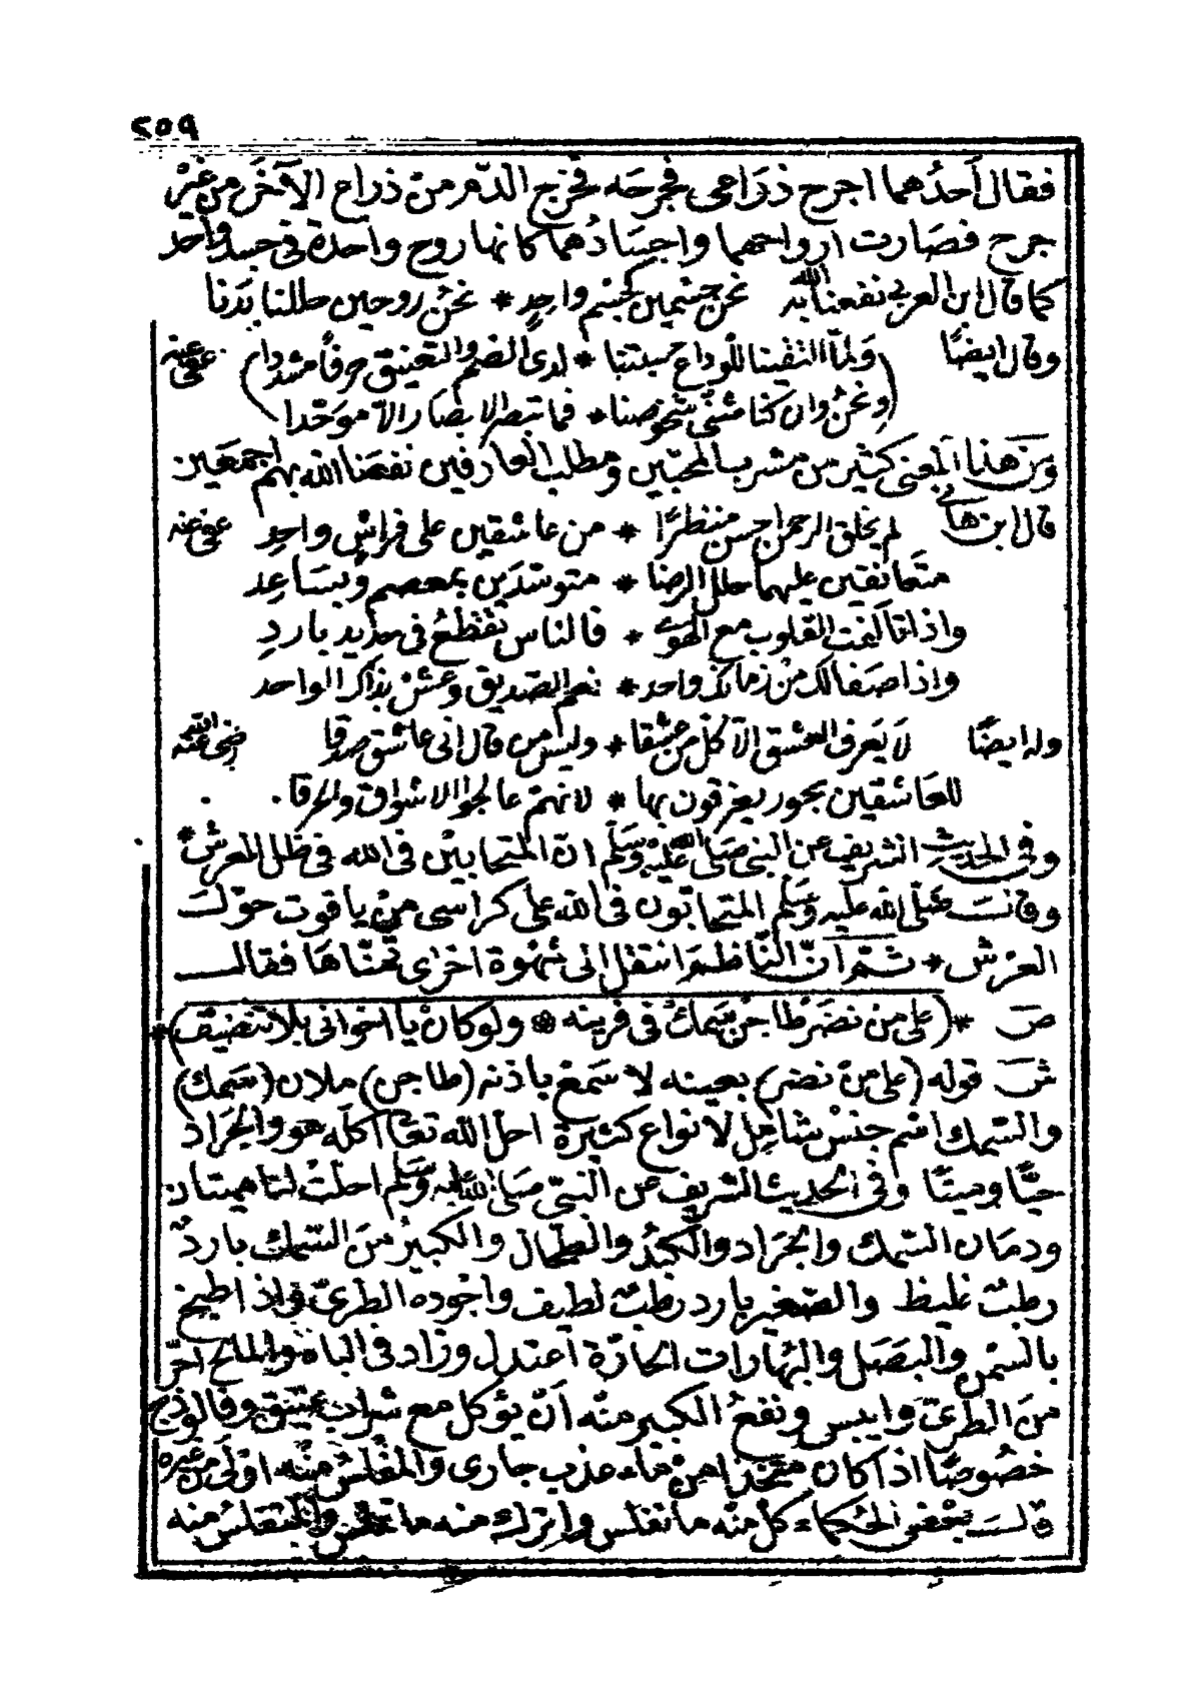 ٢٥٩
فقال أحدُهما اجرح ذرَاعى فجرحَه فخرج الدّم من ذراع الآخَر من غيْر
جرح فصَارت ارواحهما واجسَادُهما كانها روح واحدة فى جسد واحد
كما قال ابن العربي نفعنا الله به نحن جسمين كجسم واحدٍ * نحنُ روحين حللنا بَدَنا
وقال ايضًا وَلمَّا التقينا للوداع حسبتنا * لدى الضم والتعنيق حرفاً مشددا عفى عنه
ونحنُ وان كنا مثنى شخوصنا * فما تبصر الابصَار الاّ موَحّدا
ومن هذا المعنى كثير من مشرب المحبّين ومطلب العارفين نفعَنا الله بهم اجمعَين
قال ابن هانى لم يخلق الرحمن احسن منظرًا * من عاشقين على فراشٍ واحدِ عفى عنه
متعَانقين عليهما حلل الرضا * متوسّدَين بمعصم وبسَاعِد
واذا تآلفت القلوب مع الهوى * فالناس تقطعُ فى حديد باردِ
واذا صَفا لك منْ زمانك واحد * نعم الصّديق وعشْ بذاك الواحد
وله ايضًا لَا يَعرف العشق الاّ كل من عشقا * وليس من قال انى عاشق صدقا رضى الله عنه
للعَاشقين بحور يغرقون بها * لانهمْ عالجوا الاشواق والحرقا
وفى الحديث الشريف عن النبى صَلى الله عليْه وسَلّم انّ المتحابيْن فى الله فى ظل العرش *
وقالــ صَلّى الله عليه وَسَلم المتحابّون فى الله على كراسى منْ ياقوت حوْلــ
العرْش * ثـمّ انّ النّاظمَ انتقل الى شهْوة اخرٰى تمنّاهَا فقالــ
صَ * (على من نضَرْ طاجنْ سَمكْ فى فرينه ولو كانْ يا اخوانى بلا تنضيفْ) *
شَ قوله (على منْ نضر) بعينه لا سَمعَ باذنه (طاجن) ملان (سَمك)
والسّمك اسْم جنسْ شامل لأنواع كثيرة احل الله تعالى اكلَه هو والجَرَاد
حيًّا وميتًا وفى الحديث الشريف عن النّبىّ صَلى الله عليه وسَلم احلتْ لنا ميتتان
ودمَان السّمك والجَرَاد والكبدُ والطحال والكبيرُ منَ السّمك باردٌ
رطبٌ غليظ والصّغير بارد رطبٌ لطيف واجْوده الطرىّ فاذ اطبخ
بالسّمْن والبصَل والبهارات الحارّة اعتدل وزاد فى الباه والمالح احَرّ
منَ الطرىّ وايبس ونفعُ الكبير منْه أنْ يؤكل مع شراب عتيق وفالوذج
خصُوصًا اذا كان متّخذا منْ ماء عذب جارى والمفلسُ منْه اوْلى من غيره
قالــ بعْض الحُكماء كلْ منْه ما تفلس واترك منه ما تملس والمتفلسُ منه